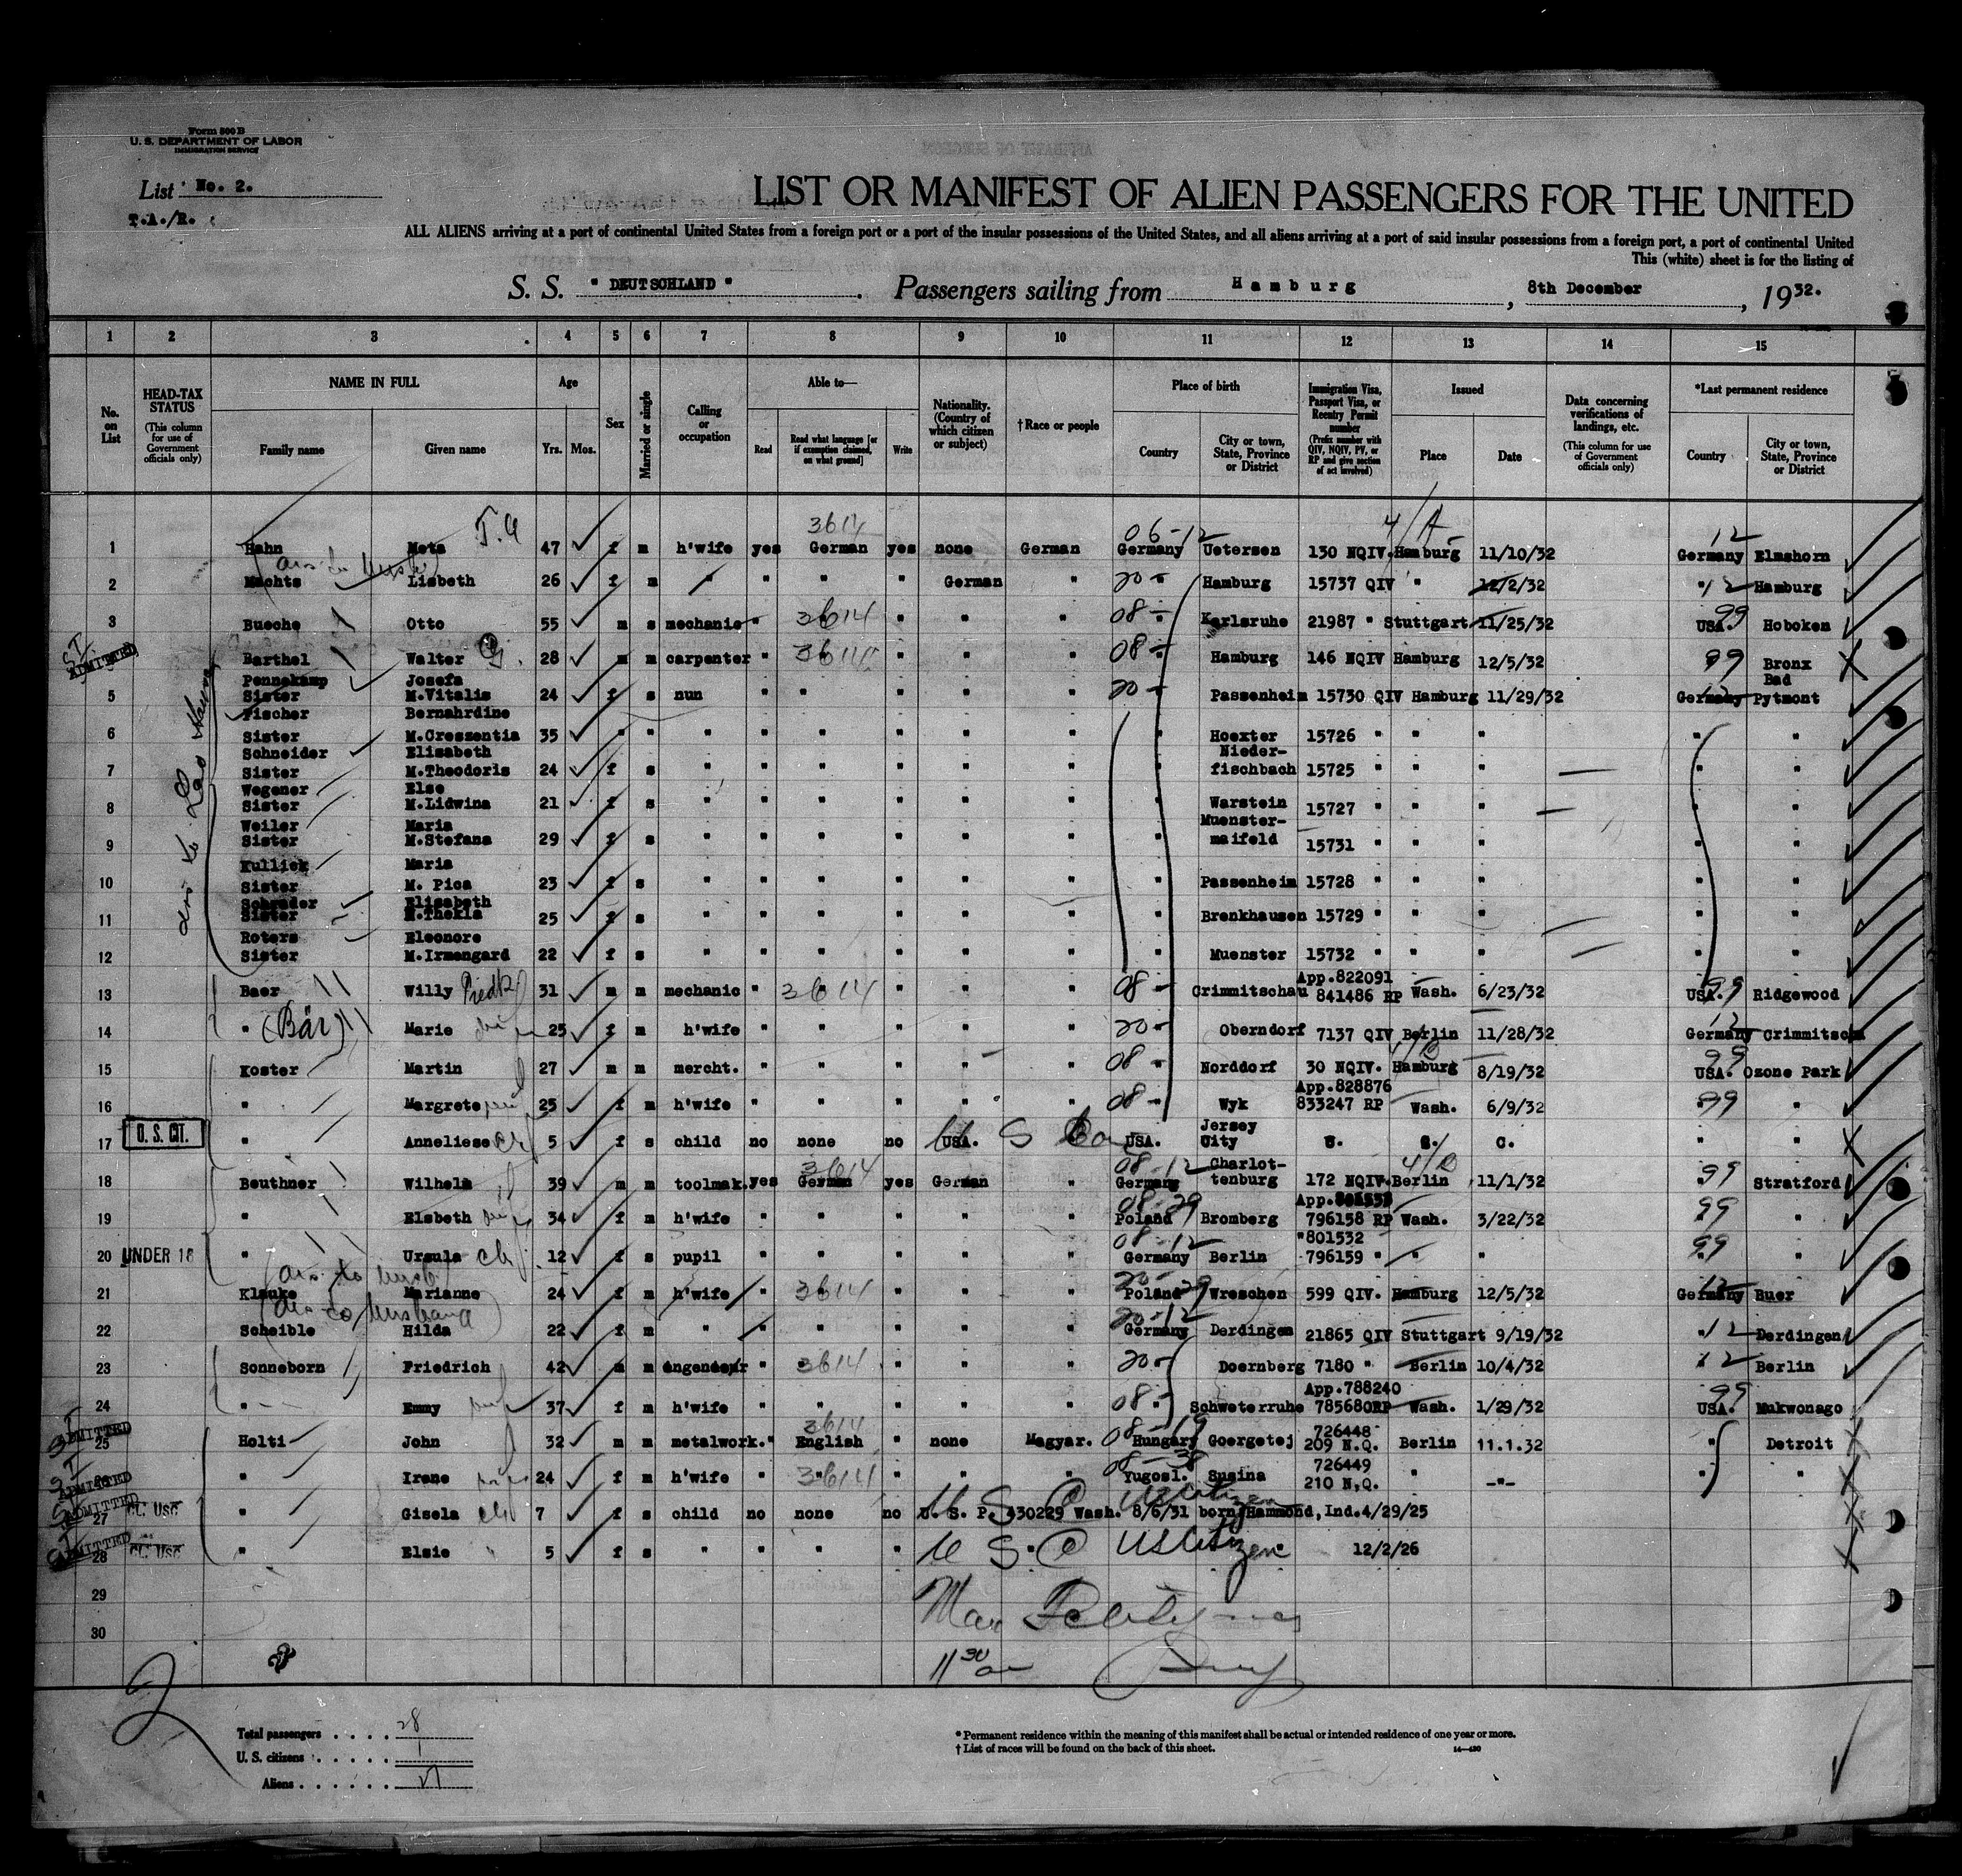 Form 500 B
U. S. DEPARTMENT OF LABOR
IMMIGRATION SERVICE
List No. 2.
T.A./R.
LIST OR MANIFEST OF ALIEN PASSENGERS FOR THE UNITED
ALL ALIENS arriving at a port of continental United States from a foreign port or a port of the insular possessions of the United States, and all aliens arriving at a port of said insular possessions from a foreign port, a port of continental United
This (white) sheet is for the listing of
S. S. " DEUTSCHLAND " Passengers sailing from Hamburg, 8th December, 1932.
1 2 3 4 5 6 7 8 9 10 11 12 13 14 15
No. on List
HEAD-TAX STATUS
(This column for use of Government officials only)
NAME IN FULL
Family name Given name
Age
Yrs. Mos.
Sex
Married or single
Calling or occupation
Able to—
Read
Read what language [or if exemption claimed, on what ground]
Write
Nationality. (Country of which citizen or subject)
† Race or people
Place of birth
Country
City or town, State, Province or District
Immigration Visa, Passport Visa, or Reentry Permit number
(Prefix number with QIV, NQIV, PV, or RP and give section of act involved)
Issued
Place Date
Data concerning verifications of landings, etc.
(This column for use of Government officials only)
*Last permanent residence
Country
City or town, State, Province or District
T.A 3614 06-12 4/A 12
1 Hahn Meta 47 f m h'wife yes German yes none German Germany Uetersen 130 NQIV. Hamburg 11/10/32 Germany Elmshorn
2 Machts Lisbeth 26 f m " " " " German " 20- " Hamburg 15737 QIV " 12/2/32 " 12 Hamburg
3 Bueche Otto 55 m s mechanic " 3614 " " " 08- " Karlsruhe 21987 " Stuttgart 11/25/32 USA. 99 Hoboken
ST ADMITTED
Barthel Walter 28 m m carpenter " 3614 " " " 08- " Hamburg 146 NQIV Hamburg 12/5/32 99 Bronx
Pennekamp Josefa Bad
5 Sister M.Vitalis 24 f s nun " " " " " 20- " Passenheim 15730 QIV Hamburg 11/29/32 Germany Pytmont
Fischer Bernahrdine
6 Sister M.Cressentia 35 " " " " " " " " " Hoexter 15726 " " " " "
Schneider Elisabeth Nieder-
7 Sister M.Theodoris 24 f s " " " " " " " fischbach 15725 " " " " "
Wegener Else
8 Sister M.Lidwina 21 f s " " " " " " " Warstein 15727 " " " " "
Weiler Maria Muenster-
9 Sister M.Stefana 29 f s " " " " " " " maifeld 15731 " " " " "
Kulliek Maria
10 Sister M. Pica 23 f s " " " " " " " Passenheim 15728 " " " " "
Schrader Elisabeth
11 Sister M.Thekla 25 f s " " " " " " " Brenkhausen 15729 " " " " "
Roters Eleonore
12 Sister M.Irmengard 22 f s " " " " " " " Muenster 15732 " " " " "
App.822091
13 Baer Willy 31 m m mechanic " 3614 " " " 08- " Crimmitschau 841486 RP Wash. 6/23/32 USA. 99 Ridgewood
14 " (Bär) Marie 25 f m h'wife " " " " " 20- " Oberndorf 7137 QIV Berlin 11/28/32 Germany 12 Crimmitscha
15 Koster Martin 27 m m mercht. " " " " " 08- " Norddorf 30 NQIV. Hamburg 8/19/32 USA. 99 Ozone Park
App.828876
16 " Margrete 25 f m h'wife " " " " " 08- " Wyk 833247 RP Wash. 6/9/32 99 "
U. S. CIT.
Jersey
17 " Anneliese 5 f s child no none no USA. USA. City U. S. C. " "
3614 08-12 Charlot-
18 Beuthner Wilhelm 39 m m toolmak. yes German yes German " Germany tenburg 172 NQIV. Berlin 11/1/32 99 Stratford
08-29
19 " Elsbeth 34 f m h'wife " " " " " Poland Bromberg 796158 RP Wash. 3/22/32 99 "
08-12 "801532
20 UNDER 16 " Ursula 12 f s pupil " " " " " Germany Berlin 796159 " " " 99 "
20-29
21 Klauke Marianne 24 f m h'wife " 3614 " " " Poland Wreschen 599 QIV. Hamburg 12/5/32 Germany 12 Buer
20-12
22 Scheible Hilda 22 f m " " " " " " Germany Derdingen 21865 QIV Stuttgart 9/19/32 " 12 Derdingen
23 Sonneborn Friedrich 42 m m " 3614 " " " 20- Doernberg 7180 " Berlin 10/4/32 12 Berlin
App.788240
24 " Emmy 37 f m h'wife " " " " " 08- Schweterruhe 785680RP Wash. 1/29/32 USA. 99 Mukwonago
ST ADMITTED
3614 08-19 726448
25 Holti John 32 m m metalwork. " English " none Magyar. Hungary Goergetej 209 N.Q. Berlin 11.1.32 " Detroit
ST ADMITTED
08-38 726449
" Irene 24 f m h'wife " 3614 " " " Yugosl. Susina 210 N.Q. " -"- " "
ST ADMITTED
27 " Gisela 7 f s child no none no U. S. P. 430229 Wash. 8/6/31 born Hammond, Ind. 4/29/25
U S C US Citizen
ST ADMITTED
28 " Elsie 5 f s " " " " U S C US Citizen 12/2/26
29
30
11 30 am
2
Total passengers . . . . 28
U. S. citizens . . . . . 1
Aliens . . . . . . 27
* Permanent residence within the meaning of this manifest shall be actual or intended residence of one year or more.
† List of races will be found on the back of this sheet.
14—430